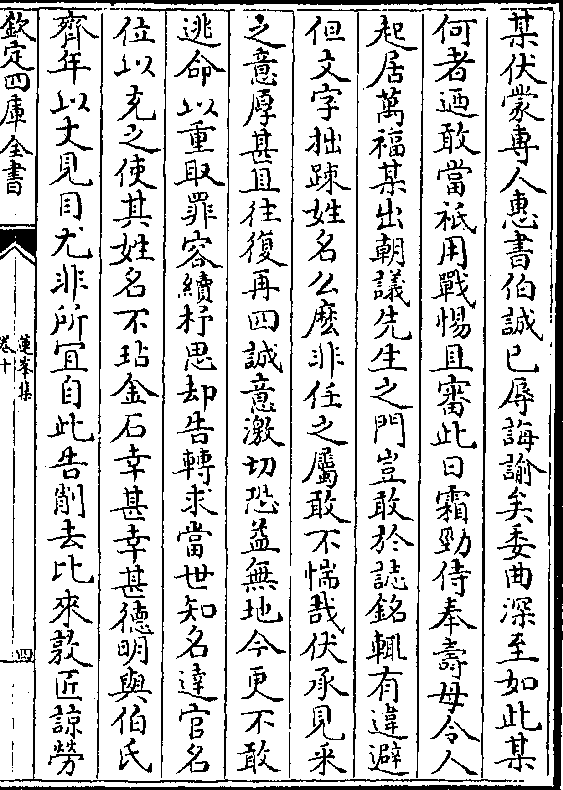 某伏蒙專人惠書伯誠已辱誨諭矣委曲深至如此某
何者迺敢當祇用戰惕且審此日霜勁侍奉壽母令人
起居萬福某出朝議先生之門豈敢於誌銘輒有違避
但文字拙踈姓名么麽非任之屬敢不惴哉伏承見釆
之意厚甚且往復再四誠意激切恐益無地今更不敢
逃命以重取罪容續杼思却告轉求當世知名達官名
位以充之使其姓名不玷金石幸甚幸甚德明與伯氏
齊年以丈見目尤非所宜自此告削去比來敦匠諒勞
欽定四庫全書
蓮峯集
卷十
四